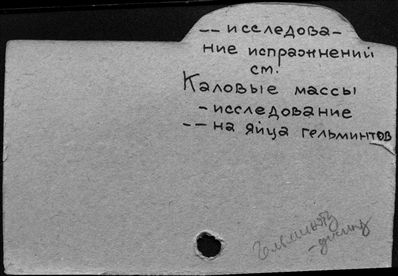 -- исследова-
ние испражнений
см.
Каловые массы
- исследование
-- на яйца гельминтов